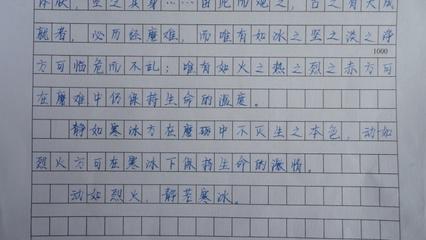 体肤，空乏其身……由此而观之，古之有大成
就者，必历经磨难，而唯有如冰之坚之洪之净
1000
方可临危而不乱；唯有如火之热之烈之赤方可
在磨难中仍保持生命的温度。
静如寒冰方在磨砺中不灭生之本色，动如
烈火方可在寒冰下保持生命的激情。
动如烈火，静若寒冰。